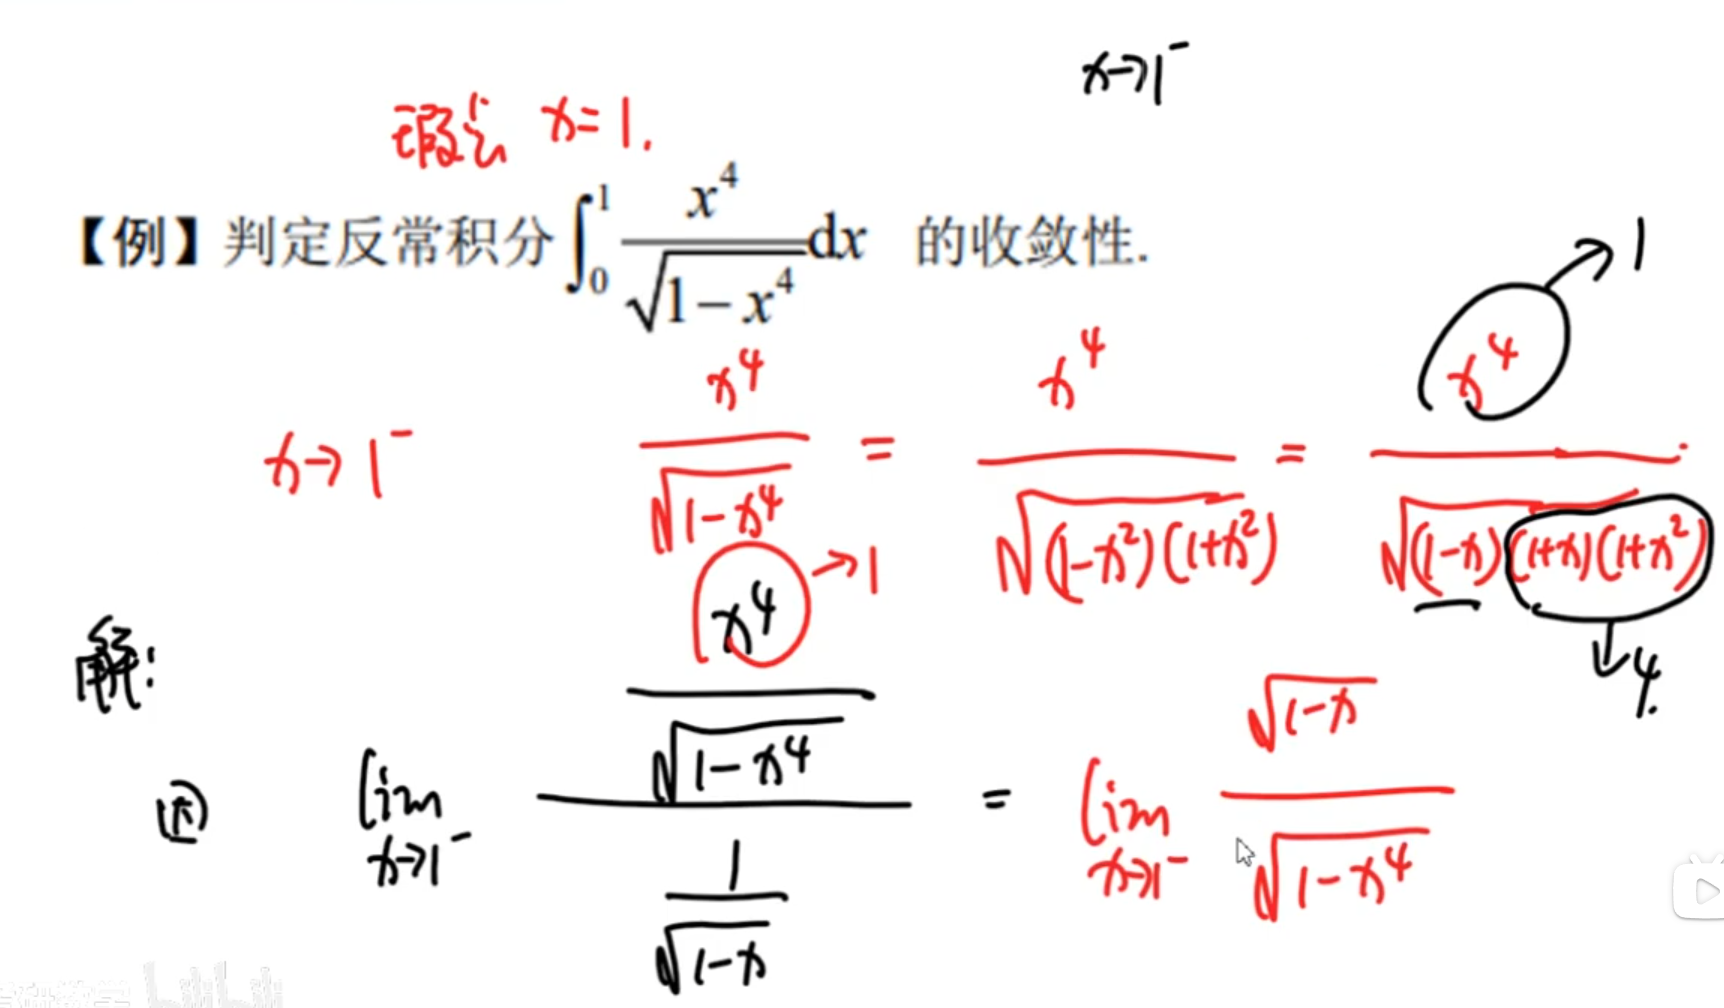 x→1⁻
瑕点 x=1.
【例】判定反常积分∫₀¹ x⁴/√(1−x⁴) dx 的收敛性.
x→1⁻ x⁴/√(1-x⁴) = x⁴/√((1-x²)(1+x²)) = x⁴/√((1-x)(1+x)(1+x²))
→1
→1
↓4.
解:
因 lim x→1⁻ (x⁴/√(1-x⁴))/(1/√(1-x)) = lim x→1⁻ √(1-x)/√(1-x⁴)
bilibili